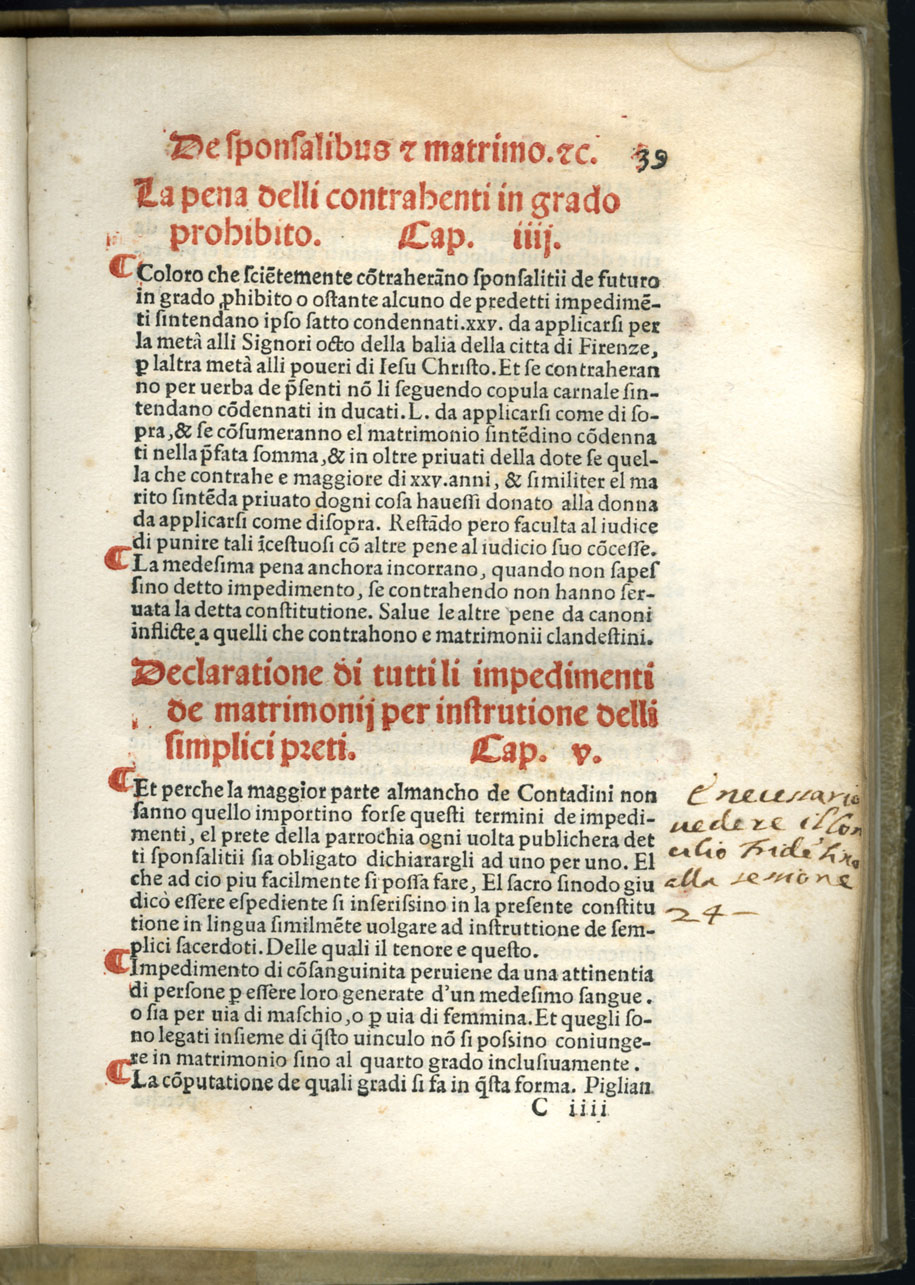 De sponsalibus ⁊ matrimo.⁊c. 39
La pena delli contrahenti in grado
prohibito. Cap. iiij.
¶ Coloro che sciẽtemente cõtraherãno sponsalitii de futuro
in grado ꝓhibito o ostante alcuno de predetti impedimẽ-
ti sintendano ipso fatto condennati.xxv. da applicarsi per
la metà alli Signori octo della balia della citta di Firenze,
ꝑ laltra metà alli poueri di Iesu Christo. Et se contraheran
no per uerba de p̃senti nõ li seguendo copula carnale sin-
tendano cõdennati in ducati.L. da applicarsi come di so-
pra,& se cõsumeranno el matrimonio sintẽdino cõdenna
ti nella p̃fata somma,& in oltre priuati della dote se quel-
la che contrahe e maggiore di xxv.anni, & similiter el ma
rito sintẽda priuato dogni cosa hauessi donato alla donna
da applicarsi come disopra. Restãdo pero faculta al iudice
di punire tali ĩcestuosi cõ altre pene al iudicio suo cõcesse.
¶ La medesima pena anchora incorrano, quando non sapes
sino detto impedimento, se contrahendo non hanno ser-
uata la detta constitutione. Salue le altre pene da canoni
inflicte a quelli che contrahono e matrimonii clandestini.
Declaratione di tutti li impedimenti
de matrimonij per instrutione delli
simplici preti. Cap. v.
¶ Et perche la maggior parte almancho de Contadini non
sanno quello importino forse questi termini de impedi-
menti, el prete della parrochia ogni uolta publichera det
ti sponsalitii sia obligato dichiarargli ad uno per uno. El
che ad cio piu facilmente si possa fare, El sacro sinodo giu
dicò essere espediente si inserissino in la presente constitu
tione in lingua similmẽte uolgare ad instruttione de sem-
plici sacerdoti. Delle quali il tenore e questo.
¶ Impedimento di cõsanguinita peruiene da una attinentia
di persone ꝑ essere loro generate d'un medesimo sangue.
o sia per uia di maschio, o ꝑ uia di femmina. Et quegli so-
no legati insieme di q̃sto uinculo nõ si possino coniunge-
re in matrimonio sino al quarto grado inclusiuamente.
¶ La cõputatione de quali gradi si fa in q̃sta forma. Piglian
C iiii
È necessario
uedere il Con
cilio Tridẽtino
alla sessione
24 –